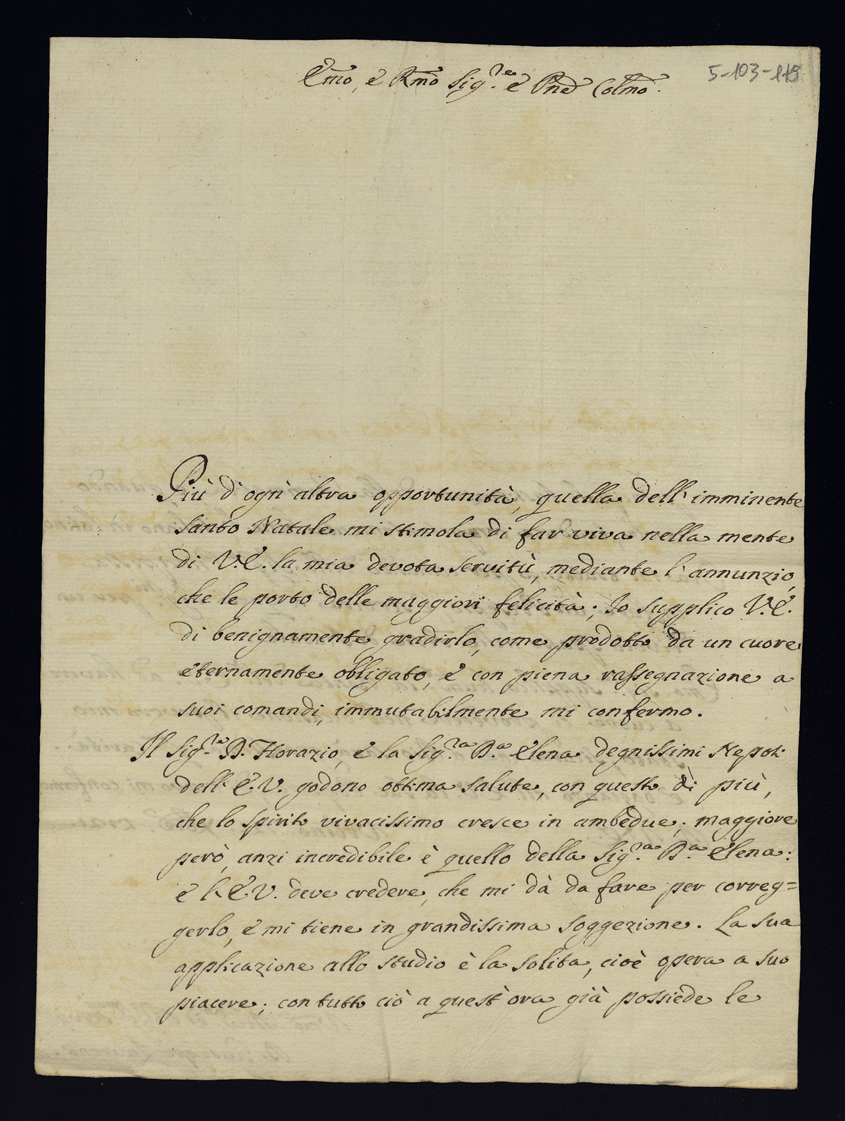 5-103-118
Emo, e Rmo Sig.re e Pne Colmo.
Più d'ogni altra opportunità, quella dell'imminente
Santo Natale mi stimola di far viva nella mente
di V.E. la mia devota servitù, mediante l'annunzio,
che le porto delle maggiori felicità. Io supplico V.E.
di benignamente gradirlo, come prodotto da un cuore
eternamente obligato, e con piena rassegnazione a
suoi comandi, immutabilmente mi confermo.
Il Sig.re D. Horazio, e la Sig.ra D.a Elena degnissimi Nepoti
dell'E.V. godono ottima salute, con questo di più,
che lo spirito vivacissimo cresce in ambedue; maggiore
però, anzi incredibile è quello della Sig.ra D.a Elena:
e l'E.V. deve credere, che mi dà da fare per correg=
gerlo, e mi tiene in grandissima soggezione. La sua
applicazione allo studio è la solita, cioè opera a suo
piacere; con tutto ciò a quest'ora già possiede le